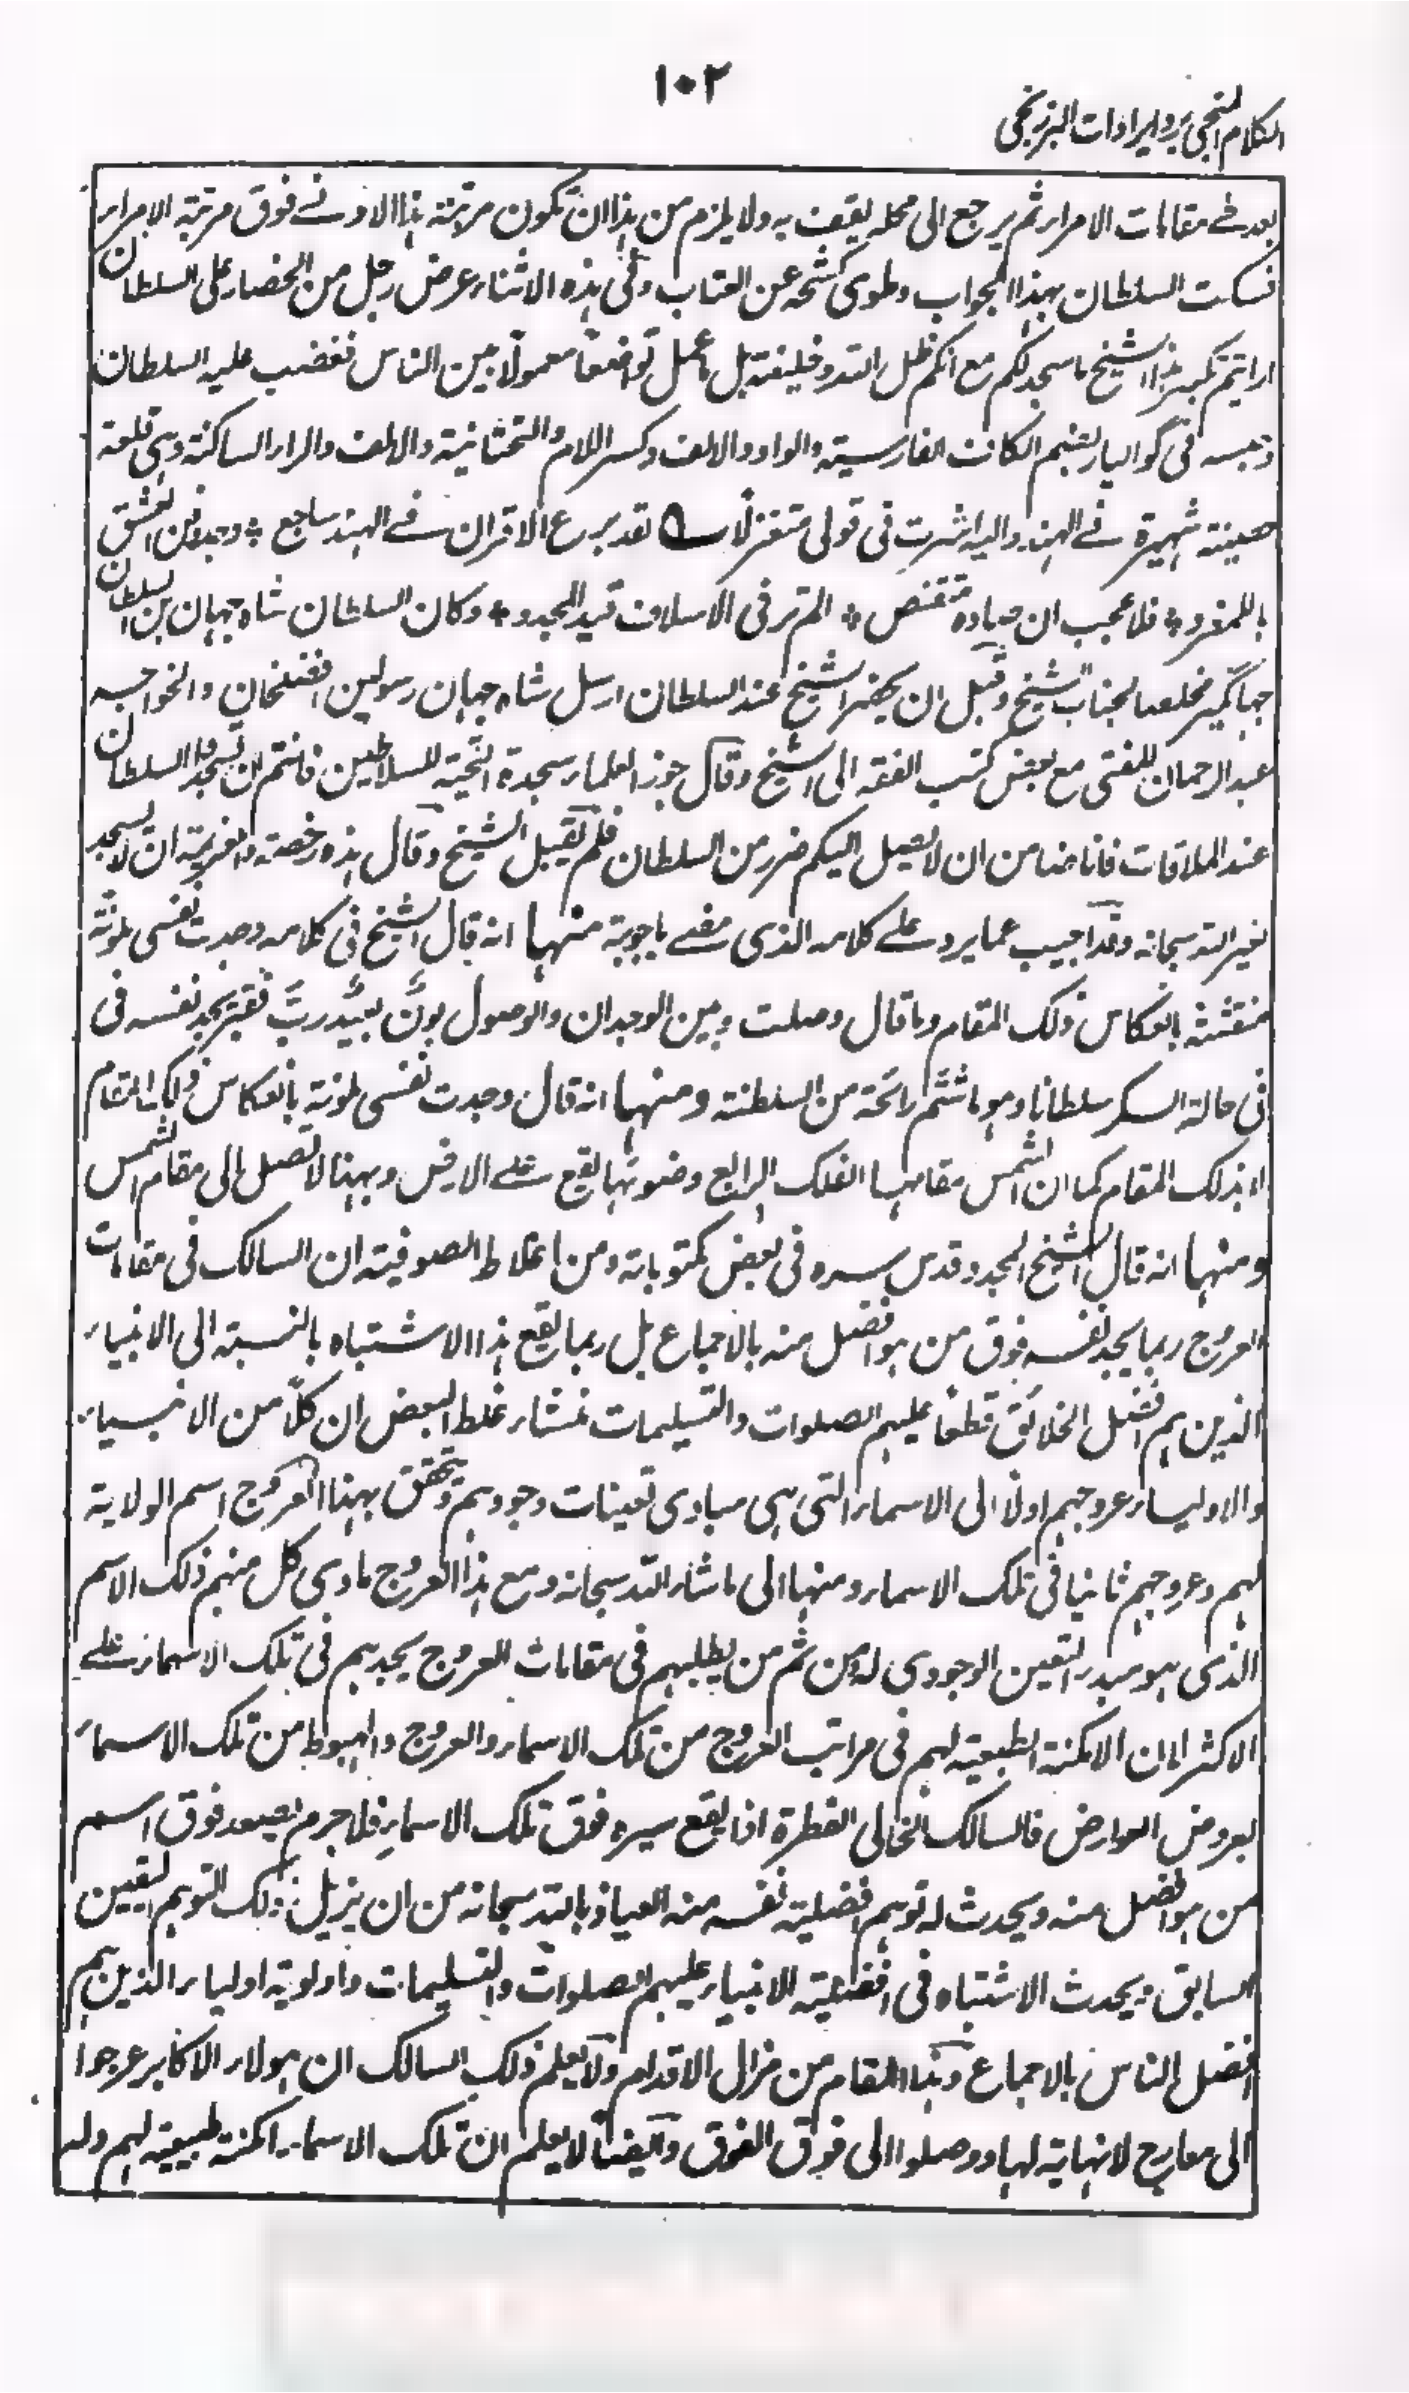 ١٠٢
الكلام المنجي برد ايرادات البرزنجي
بعد طے مقامات الامراء ثم يرجع الى محله يقف به ولا يلزم من هذا ان تكون مرتبة هذا الادنے فوق مرتبة الامراء
فسكت السلطان بهذا الجواب وطوى كشحه عن العتاب وفي هذه الاثناء عرض رجل من الحضار على السلطان
ارايتم تكبر هذا الشيخ ما سجد لكم مع انكم ظل الله وخليفته بل ما عمل تواضعا معمولا بين الناس فغضب عليه السلطان
وحبسه في گواليار بضم الكاف الفارسية والواو والالف وكسر اللام والتحتانية والالف والراء الساكنة وهى قلعة
حصينة شهيرة فے الهند واليه اشرت في قولى متغزلا ؎ لقد برع الاقران فے الهند ساجع ٭ وجدد فن العشق
باللمغرد ٭ فلا عجب ان صياده متقنص ٭ الم تر في الاسلاف قيد المجدد ٭ وكان السلطان شاه جهان بن السلطان
جهانگير مخلصا لجناب الشيخ وقبل ان يحضر الشيخ عند السلطان ارسل شاه جهان رسولين افضلخان والخواجه
عبد الرحمان المفتى مع بعض كتب الفقه الى الشيخ وقال جوز العلماء سجدة التحية للسلاطين فانتم ان تسجدوا السلطان
عند الملاقات فانا ضامن ان لا يصل اليكم ضرر من السلطان فلم يقبل الشيخ وقال هذه رخصة والعزيمة ان لا يسجد
لغير الله سبحانه وقد اجيب عما يرد علے كلامه الذى مضے باجوبة منها انه قال الشيخ في كلامه وجدت نفسى ملونة
منقشة بانعكاس ذلك المقام وما قال وصلت وبين الوجدان والوصول بونٌ بيِّد ربَّ فقير يجد نفسه في
في حالة السكر سلطانا وهو ما شم رائحة من السلطنة ومنها انه قال وجدت نفسى ملونة بانعكاس ذلك المقام
لا بذلك المقام كما ان الشمس مقامها الفلك الرابع وضوئها يقع علے الارض وبهذا لا تصل الى مقام الشمس
ومنها انه قال الشيخ المجدد قدس سره في بعض مكتوباته ومن اغلاط الصوفية ان السالك في مقامات
العروج ربما يجد نفسه فوق من هو افضل منه بالاجماع بل ربما يقع هذا الاشتباه بالنسبة الى الانبياء
الذين هم افضل الخلائق قطعا عليهم الصلوات والتسليمات فمنشاء غلط البعض ان كلا من الانبياء
والاولياء عروجهم اولا الى الاسماء التى هى مبادى تعينات وجودهم وتحقق بهذا العروج اسم الولاية
لهم وعروجهم ثانيا في تلك الاسماء ومنها الى ما شاء الله سبحانه ومع هذا العروج ماوى كل منهم ذلك الاسم
الذى هو مبدء التعين الوجودى له ومن ثم من يطلبهم في مقامات العروج يجدهم في تلك الاسماء علے
الاكثر لان الامكنة الطبيعية لهم في مراتب العروج من تلك الاسماء والعروج والهبوط من تلك الاسماء
بعروض العوارض فالسالك الخالى الفطرة اذا يقع سيره فوق تلك الاسماء فلا جرم يصعد فوق اسم
من هو افضل منه ويحدث له توهم افضلية نفسه منه العياذ بالله سبحانه من ان يزيل ذلك التوهم اليقين
السابق ويحدث الاشتباه في افضلية الانبياء عليهم الصلوات والتسليمات واولوية اولياء الذين هم
افضل الناس بالاجماع وهذا المقام من مزال الاقدام ولا يعلم ذلك السالك ان هولاء الاكابر عرجوا
الى معارج لا نهاية لها ووصلوا الى فوق الفوق وايضا لا يعلم ان تلك الاسماء امكنة طبيعية لهم وله